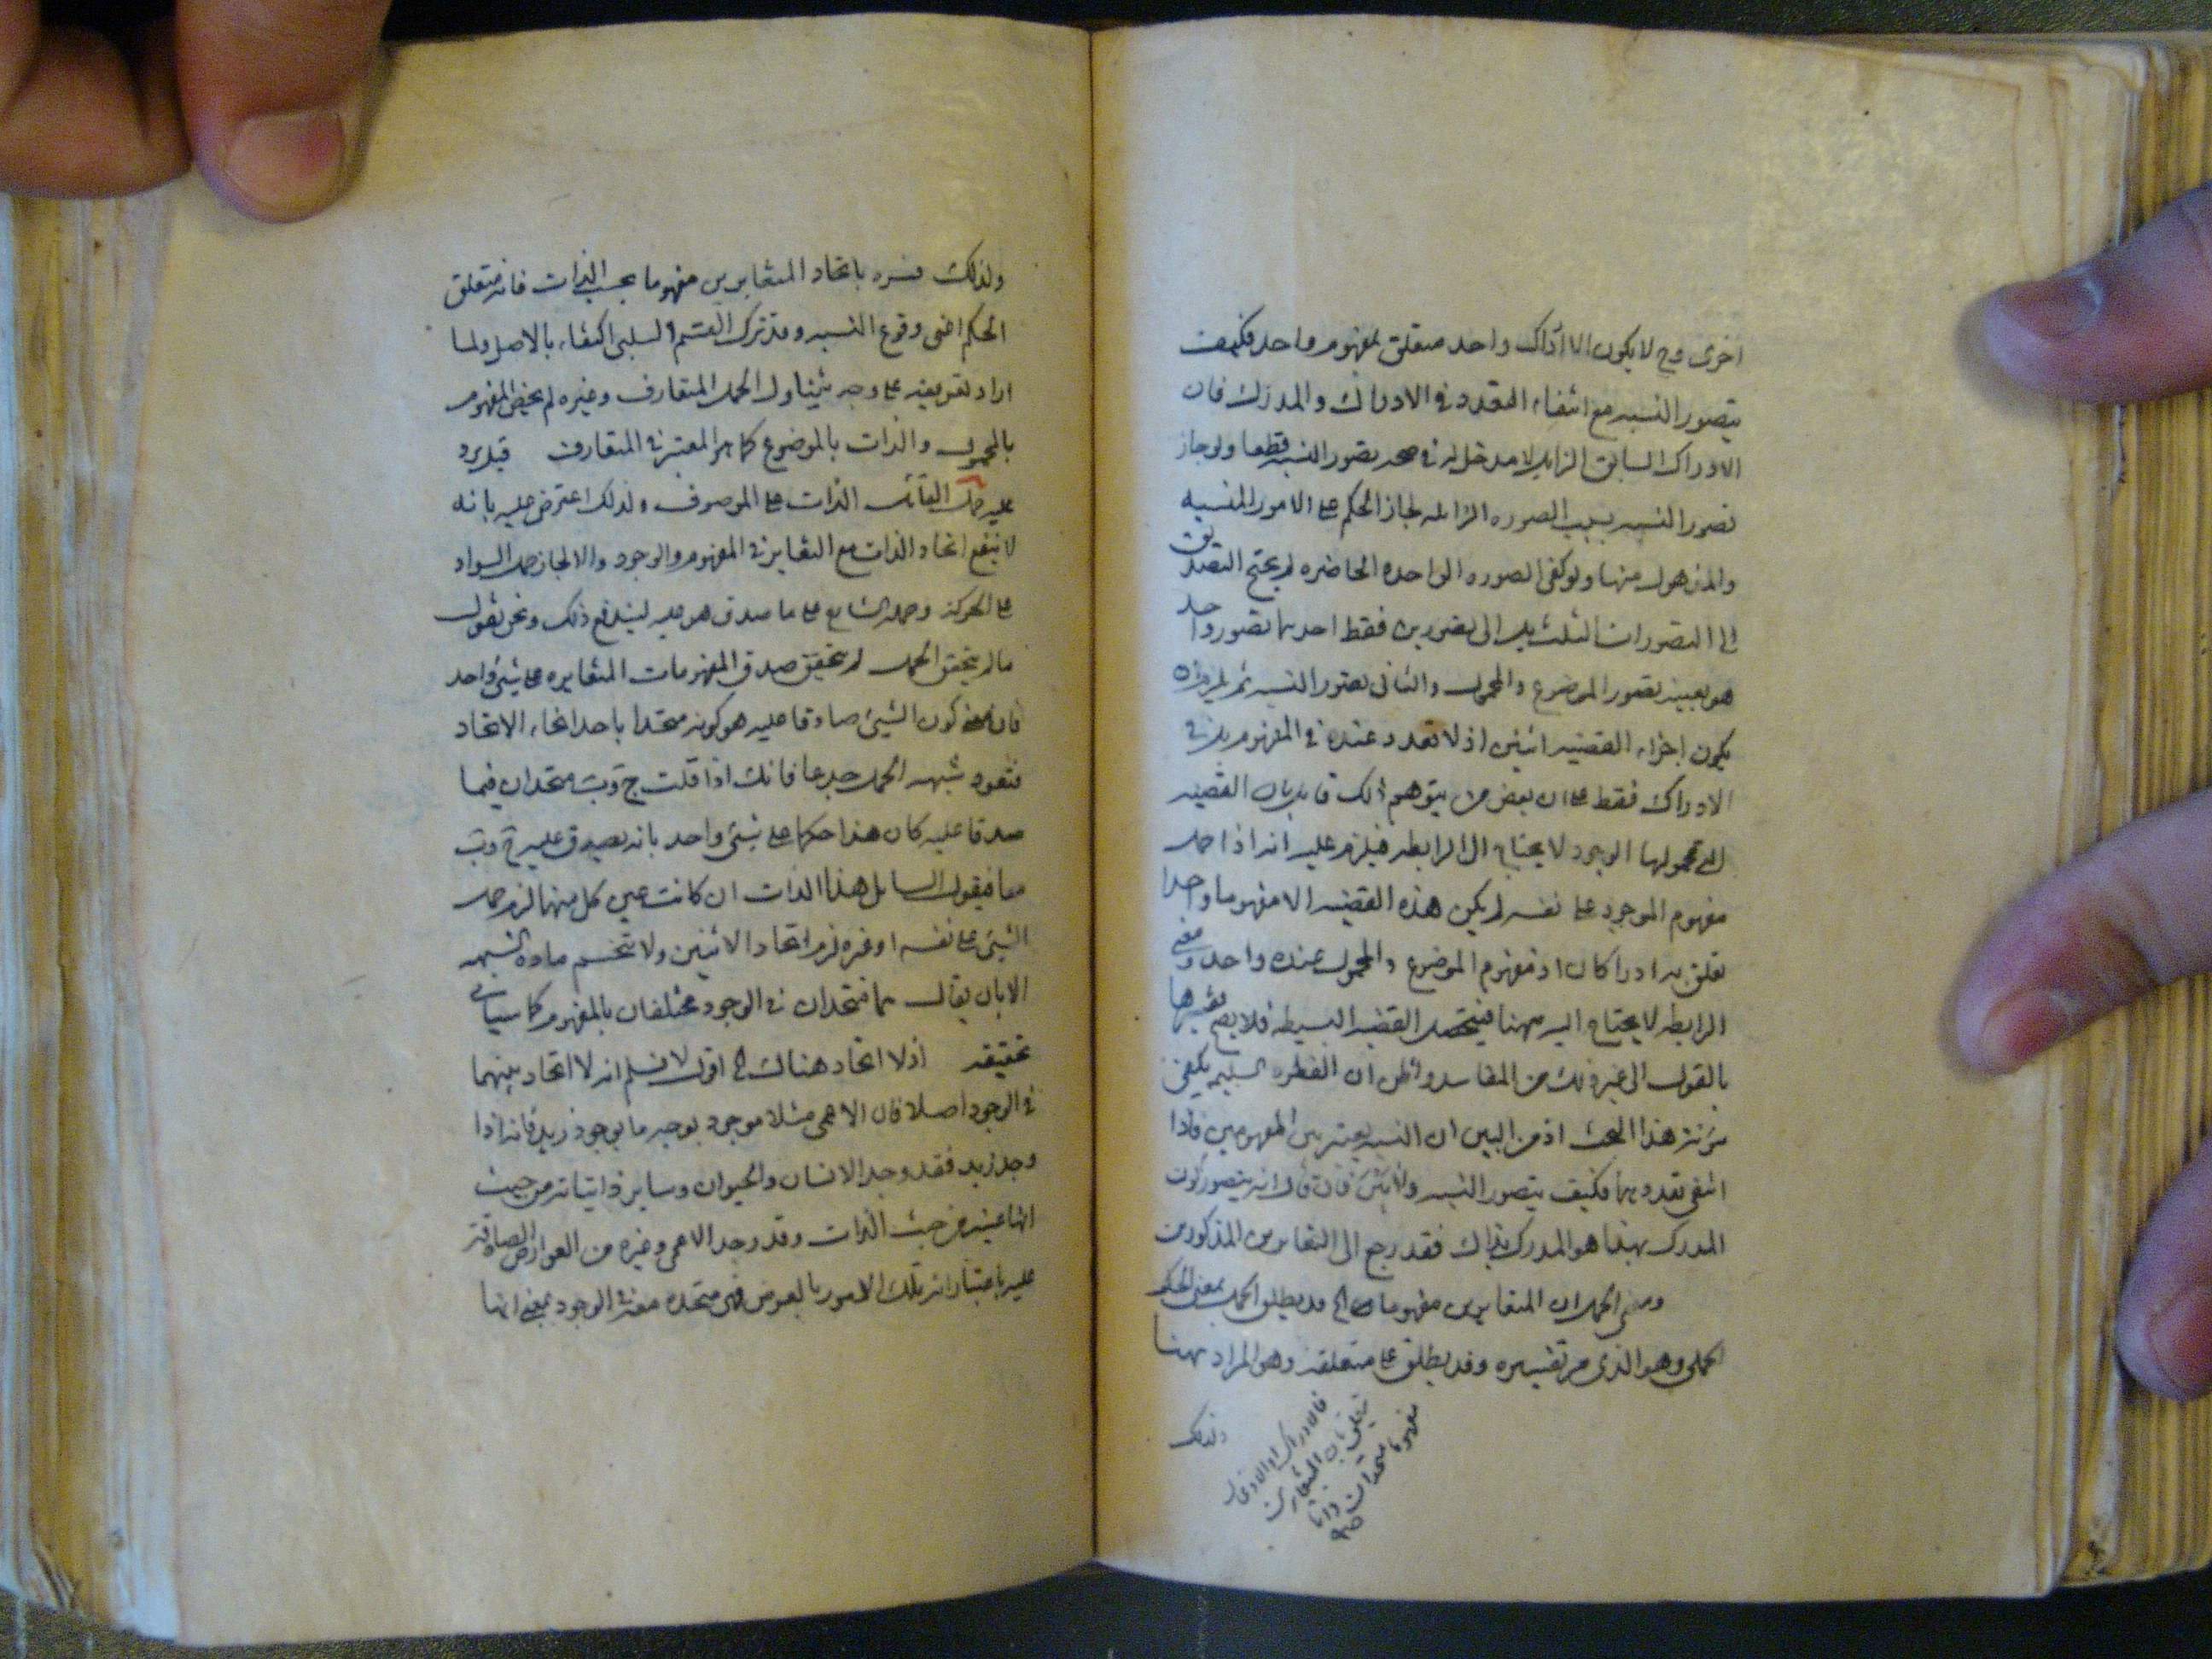 اخرى وح لا يكون الا ادراك واحد متعلق بمفهوم واحد فكيف
يتصور النسبه مع انتفاء التعدد في الادراك والمدرك فان
الادراك السابق الزايل لا مدخل له في صحه تصور النسبه قطعا ولو جاز
تصور النسبه بسبب الصوره الزايله لجاز الحكم على الامور المنسيه
والمذهول عنها ولو كفى الصوره الواحده الحاضره لم يحتج التصديق
الى التصورات الثلث بل الى تصورين فقط احدهما تصور واحد
هو بعينه تصور الموضوع والمحمول والثاني تصور النسبه ثم يلزم ان
يكون اجزاء القضيه اثنين اذ لا تعدد عنده في المفهوم بل في
الادراك فقط على ان بعض من يتوهم ذلك قايل بان القضيه
التي محمولها الوجود لا يحتاج الى الرابطه فيلزم عليه انه اذا حمل
مفهوم الموجود على نفسه لم يكن هذه القضيه الا مفهوما واحدا
تعلق به ادراكان اذ مفهوم الموضوع والمحمول عنده واحد ومعنى
الرابطه لا يحتاج اليه ههنا فيتحصل القضيه البسيطه فلا يصح تفسيرها
بالقول الى غير ذلك من المفاسد واظن ان الفطره السليمه يكفي
مؤنة هذا البحث اذ من البين ان النسبه يعتبر بين المفهومين فاذا
انتفى تعددهما فكيف يتصور النسبه فان قال انه يتصور كون
المدرك بهذا هو المدرك بذاك فقد رجع الى التغاير بين المذكورين
ومعنى الحمل ان المتغايرين مفهوما الخ قد يطلق الحمل بمعنى الحكم
الحملي وهو الذي مر تفسيره وقد يطلق على متعلقه وهو المراد ههنا
ولذلك
فالادراك او الاذعان
تعلق بان المتغايرين
مفهوما متحدان ذاتا
ولذلك فسره باتحاد المتغايرين مفهوما بحسب الذات فانه متعلق
الحكم اعنى وقوع النسبه وقد ترك القسم السلبى اكتفاء بالاصل ولما
اراد تعريفه على وجه يتناول الحمل المتعارف وغيره لم يخص المفهوم
بالمحمول والذات بالموضوع كما هو المعتبر في المتعارف قيل يرد
عليه حمل الذات على الموصوف ولذلك اعترض عليه بانه
لا ينفع اتحاد الذات مع التغاير في المفهوم والوجود والا لجاز حمل السواد
على الحركة وحمله الشارح على ما صدق هو عليه ليندفع ذلك ونحن نقول
ما لم يتحقق الحمل لم يتحقق صدق المفهومات المتغايره على شيئ واحد
فان معنى كون الشيئ صادقا عليه هو كونه متحدا باحد انحاء الاتحاد
فتعود شبهه الحمل جدعا فانك اذا قلت ج وب متحدان فيما
صدقا عليه كان هذا حكما على شيئ واحد بانه يصدق عليه ج وب
معا فيقول السايل هذا الذات ان كانت عين كل منهما لزم حمل
الشيئ على نفسه او غيره لزم اتحاد الاثنين ولا تنحسم ماده الشبهه
الا بان يقال هما متحدان في الوجود مختلفان بالمفهوم كما سياتي
تحقيقه اذ لا اتحاد هناك الخ اقول لا نسلم انه لا اتحاد بينهما
في الوجود اصلا فان الاعمى مثلا موجود بوجه ما بوجود زيد فانه اذا
وجد زيد فقد وجد الانسان والحيوان وساير ذاتياته من حيث
انها عينه من حيث الذات وقد وجد الاعمى وغيره من العوارض الصادقة
عليه باعتبار انه تلك الامور بالعرض فهى متحده معه في الوجود بمعنى انها